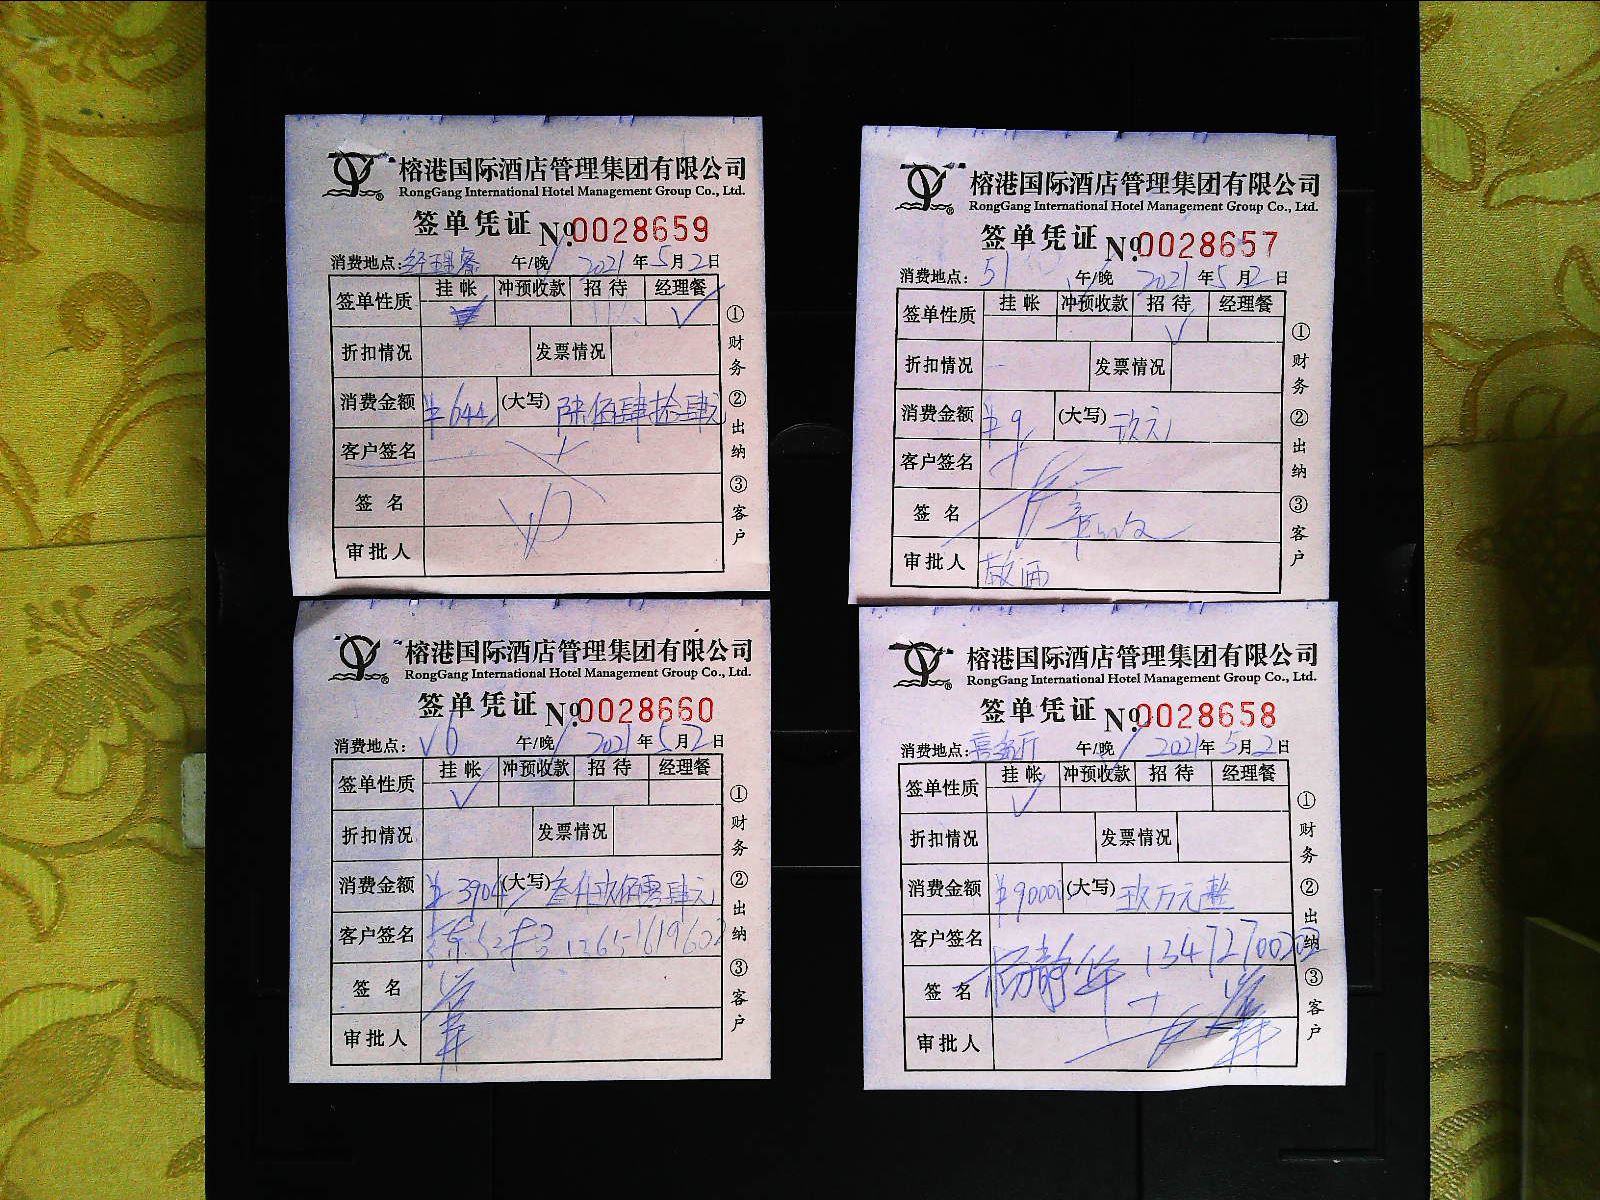 榕港国际酒店管理集团有限公司
RongGang International Hotel Management Group Co., Ltd.
签单凭证 No.0028659
消费地点:经理餐 午/晚 2021年5月2日
签单性质 挂帐 冲预收款 招待 经理餐
折扣情况 发票情况
消费金额 ¥644 (大写) 陆佰肆拾肆元
客户签名
签名
审批人
①财务 ②出纳 ③客户
榕港国际酒店管理集团有限公司
RongGang International Hotel Management Group Co., Ltd.
签单凭证 No.0028657
消费地点:51 午/晚 2021年5月2日
签单性质 挂帐 冲预收款 招待 经理餐
折扣情况 发票情况
消费金额 ¥9 (大写) 玖元
客户签名
签名
审批人
①财务 ②出纳 ③客户
榕港国际酒店管理集团有限公司
RongGang International Hotel Management Group Co., Ltd.
签单凭证 No.0028660
消费地点:V6 午/晚 2021年5月2日
签单性质 挂帐 冲预收款 招待 经理餐
折扣情况 发票情况
消费金额 ¥3904 (大写) 叁仟玖佰零肆元
客户签名 13651619602
签名
审批人
①财务 ②出纳 ③客户
榕港国际酒店管理集团有限公司
RongGang International Hotel Management Group Co., Ltd.
签单凭证 No.0028658
消费地点: 午/晚 2021年5月2日
签单性质 挂帐 冲预收款 招待 经理餐
折扣情况 发票情况
消费金额 ¥90000 (大写) 玖万元整
客户签名
签名 杨静华 13472700202
审批人
①财务 ②出纳 ③客户